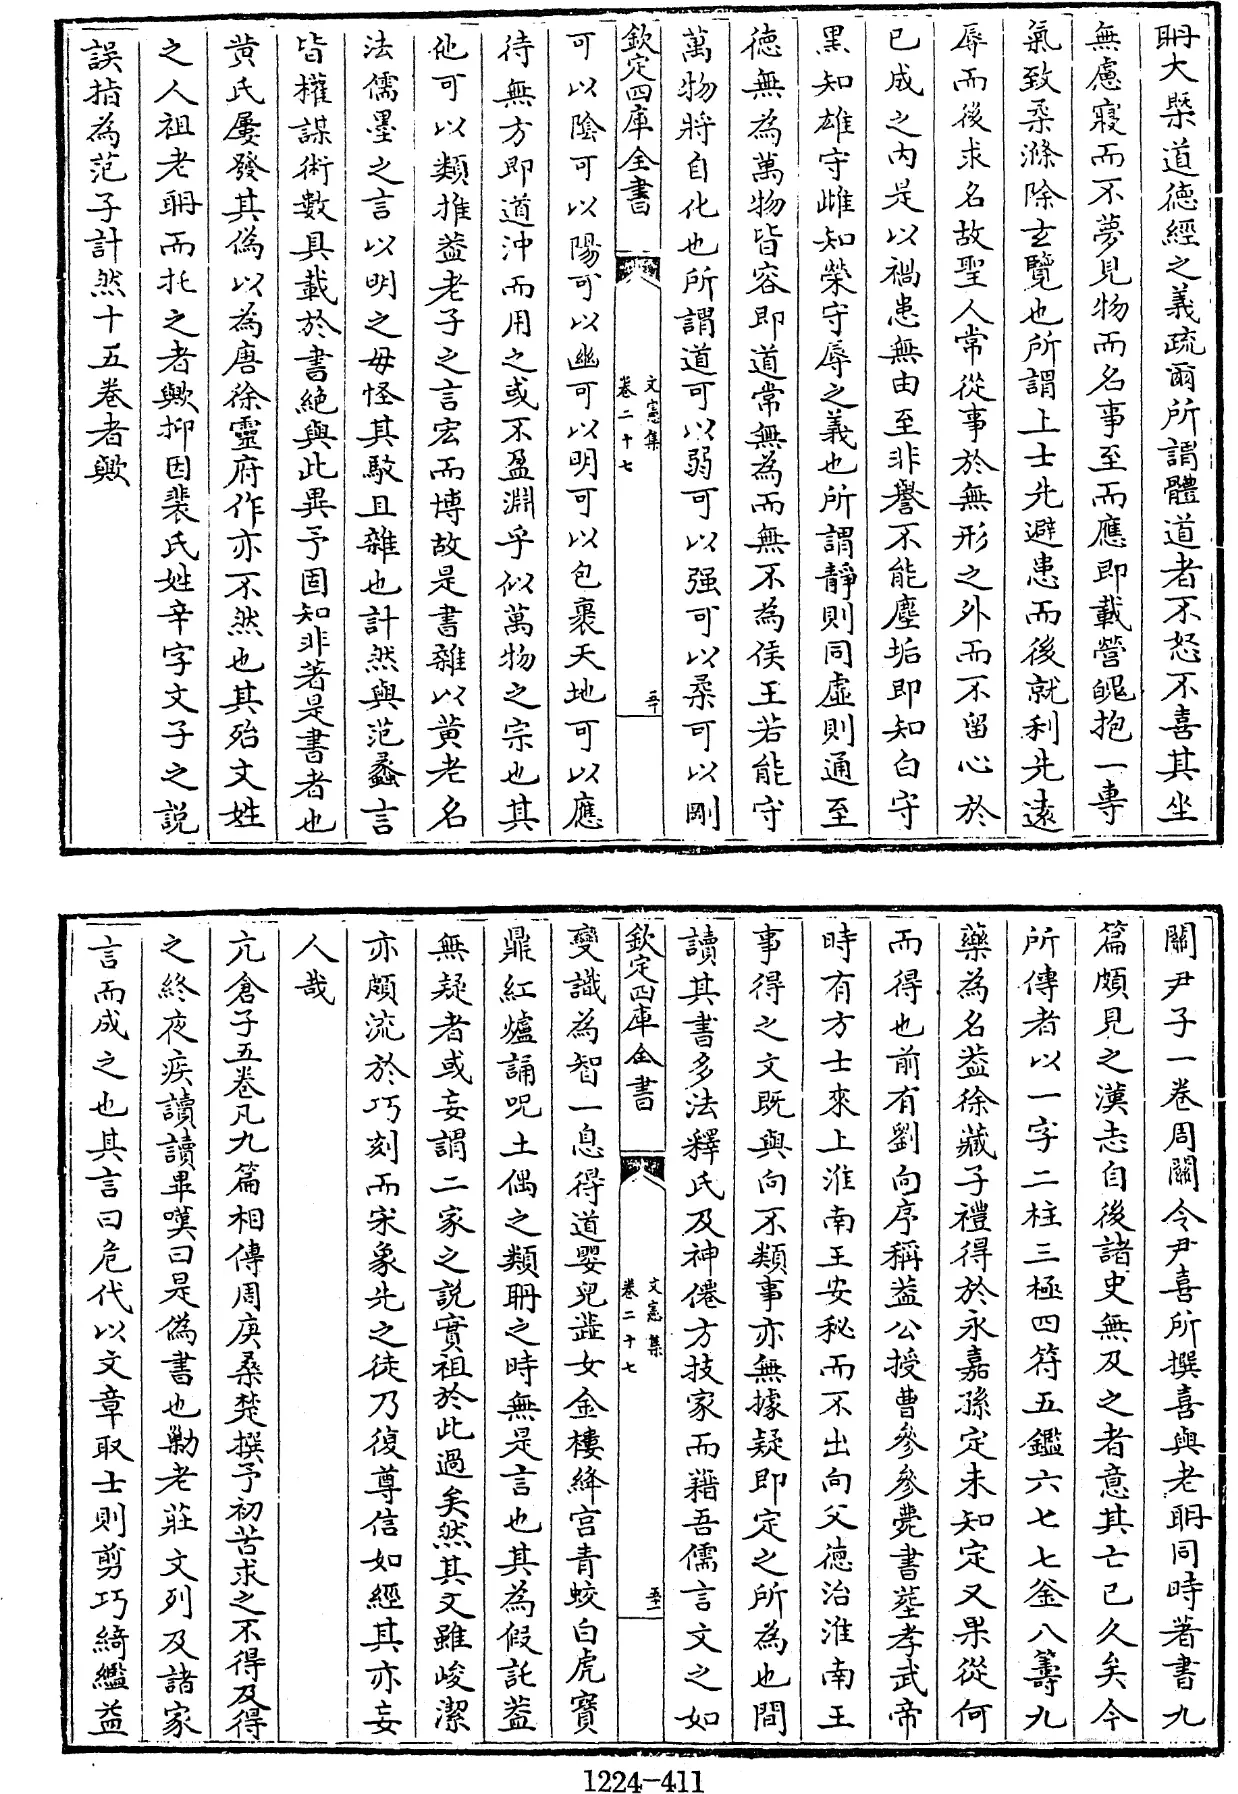 聃大槩道徳經之義疏爾所謂體道者不怒不喜其坐
無慮寢而不夢見物而名事至而應即載營魄抱一專
氣致柔滌除玄覽也所謂上士先避患而後就利先逺
辱而後求名故聖人常從事於無形之外而不留心於
已成之内是以禍患無由至非譽不能塵垢即知白守
黒知雄守雌知榮守辱之義也所謂靜則同虛則通至
徳無為萬物皆容即道常無為而無不為侯王若能守
萬物將自化也所謂道可以弱可以强可以柔可以剛
欽定四庫全書
文憲集
卷二十七
五十
可以陰可以陽可以幽可以明可以包裹天地可以應
待無方即道沖而用之或不盈淵乎似萬物之宗也其
他可以類推葢老子之言宏而博故是書雜以黄老名
法儒墨之言以明之毋怪其駮且雜也計然與范蠡言
皆權謀術數具載於書絶與此異予固知非著是書者也
黄氏屢發其偽以為唐徐靈府作亦不然也其殆文姓
之人祖老聃而托之者歟抑因裴氏姓辛字文子之説
誤指為范子計然十五卷者歟
關尹子一卷周關令尹喜所撰喜與老聃同時著書九
篇頗見之漢志自後諸史無及之者意其亡已久矣今
所傳者以一字二柱三極四符五鑑六七七釜八籌九
藥為名葢徐藏子禮得於永嘉孫定未知定又果從何
而得也前有劉向序稱葢公授曹參參薨書塟孝武帝
時有方士來上淮南王安秘而不出向父徳治淮南王
事得之文既與向不類事亦無據疑即定之所為也間
讀其書多法釋氏及神僊方技家而藉吾儒言文之如
欽定四庫全書
文憲集
卷二十七
五十一
變識為智一息得道嬰兒蘂女金樓絳宫青蛟白虎寳
鼎紅爐誦呪土偶之類聃之時無是言也其為假託葢
無疑者或妄謂二家之説實祖於此過矣然其文雖峻潔
亦頗流於巧刻而宋象先之徒乃復尊信如經其亦妄
人哉
亢倉子五卷凡九篇相傳周庚桑楚撰予初苦求之不得及得
之終夜疾讀讀畢嘆曰是偽書也勦老莊文列及諸家
言而成之也其言曰危代以文章取士則剪巧綺繿益
1224-411